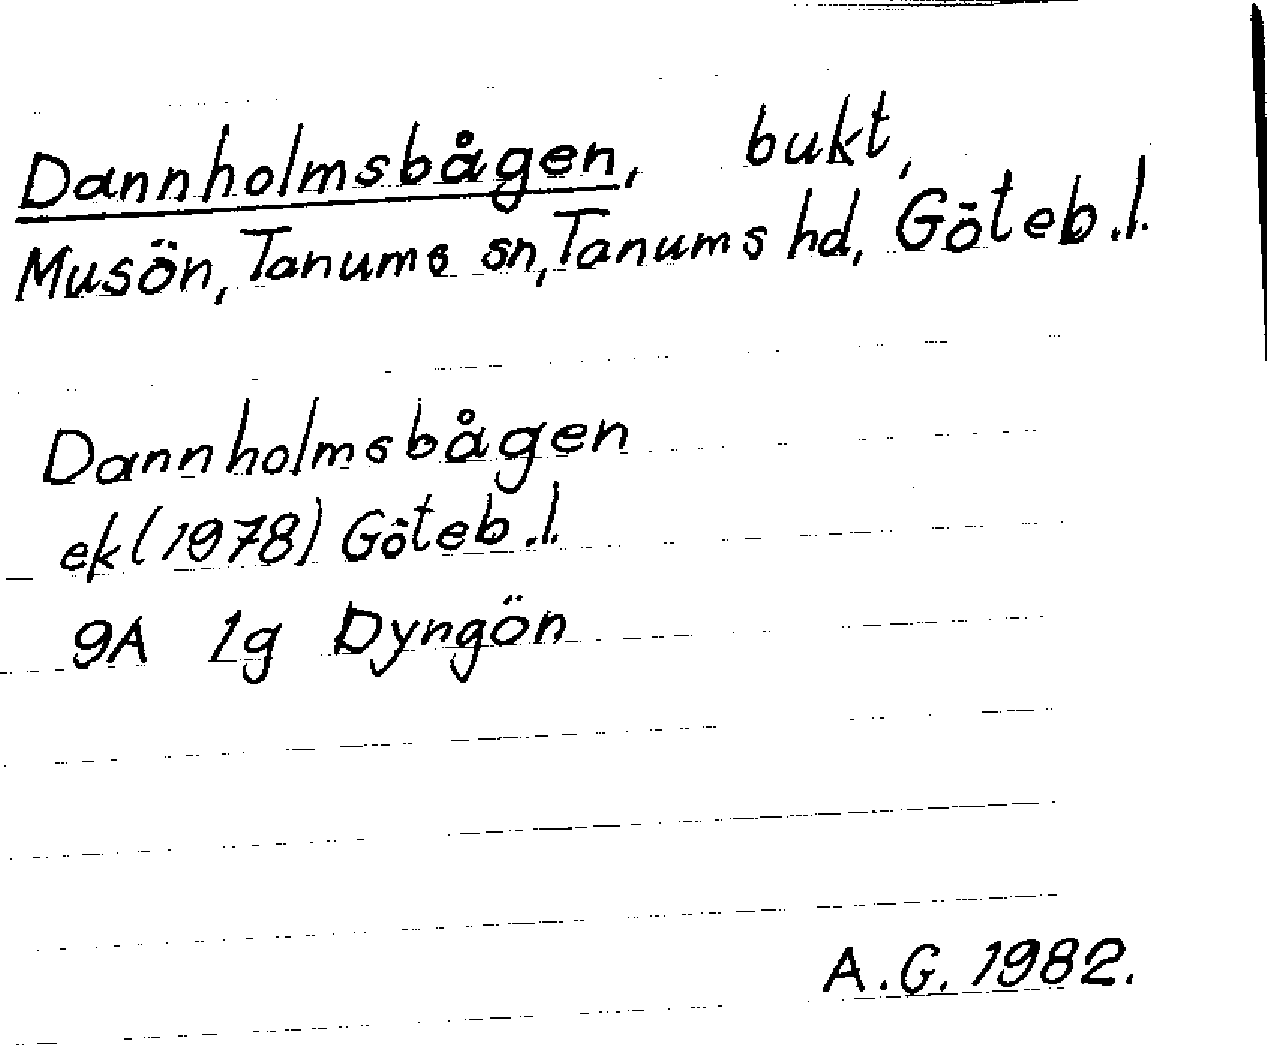 Dannholmsbågen, bukt,
Musön, Tanums sn, Tanums hd, Göteb.l.
Dannholmsbågen
ek (1978) Göteb.l.
9A 1g Dyngön
A.G. 1982.